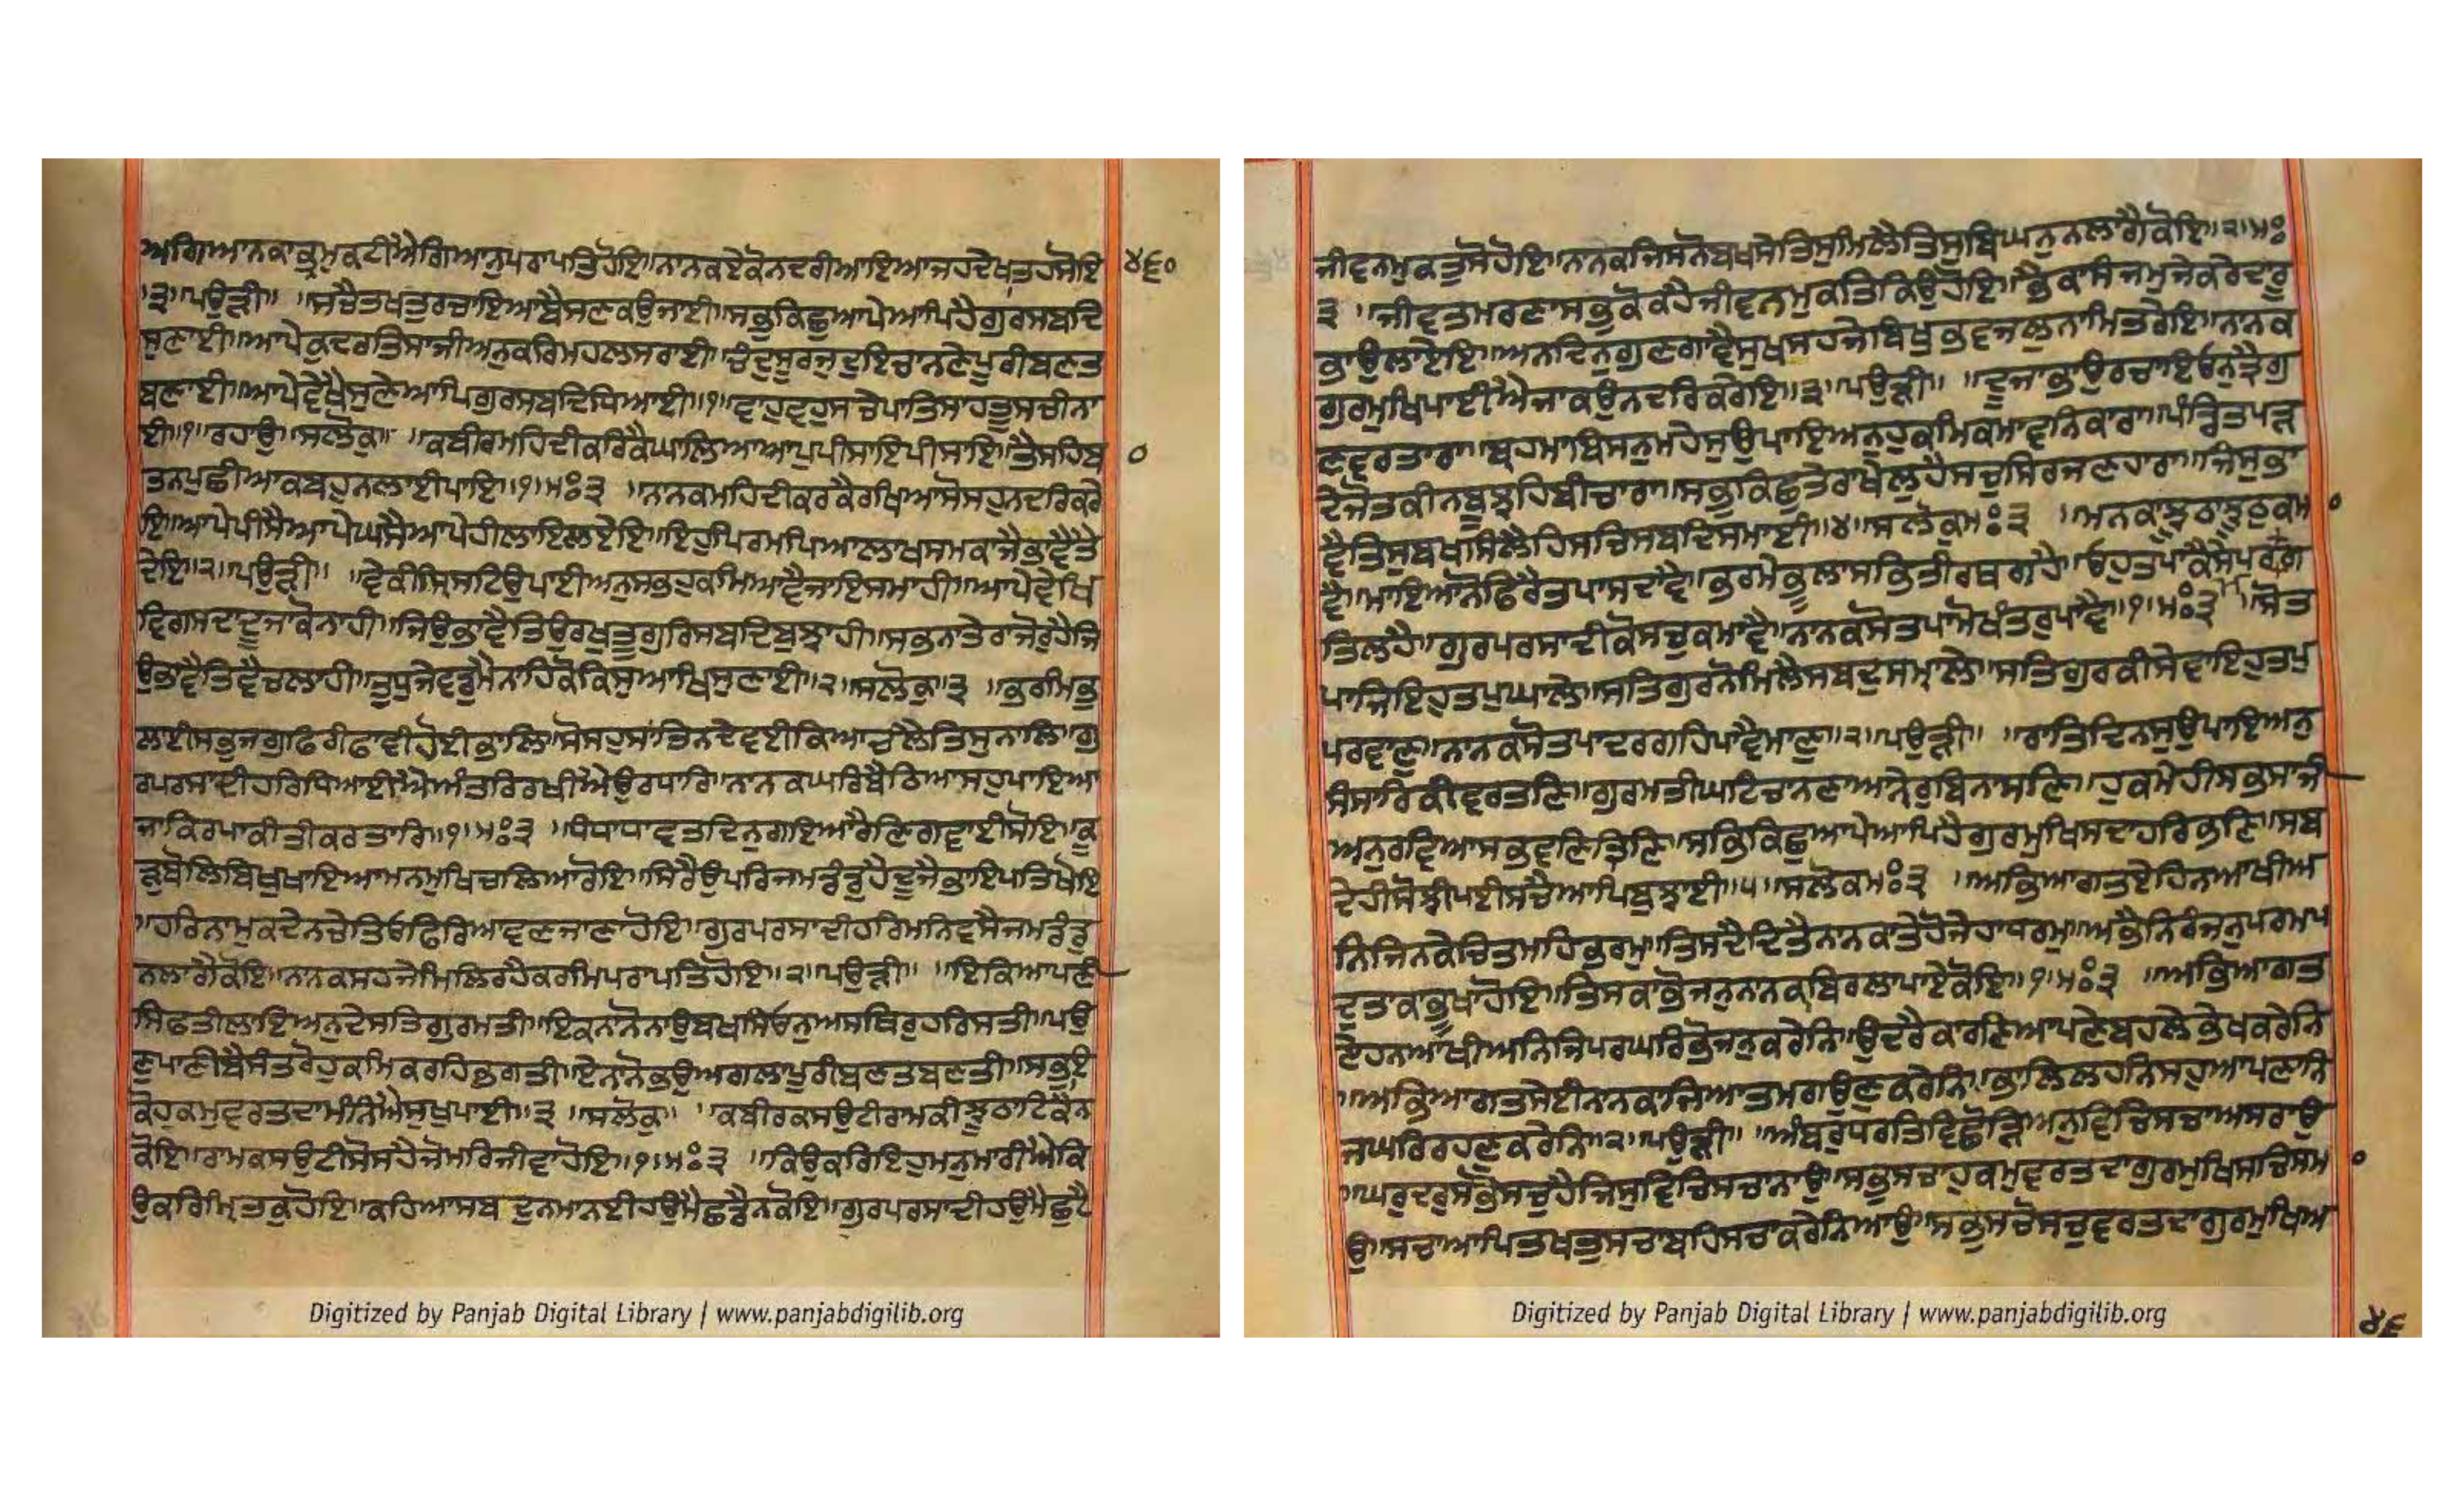 ਅਗਿਆਨਕਾਭ੍ਰਮੁਕਟੀਐਗਿਆਨੁਪਰਾਪਤਿਹੋਇ॥ਨਾਨਕਏਕੋਨਦਰੀਆਇਆਜਹਦੇਖਤਹਸੋਇ
॥੩॥ਪਉੜੀ॥ ॥ਸਚੈਤਖਤੁਰਚਾਇਆਬੈਸਣਕਉਜਾਈ॥ਸਭੁਕਿਛੁਆਪੇਆਪਿਹੈਗੁਰਸਬਦਿ
ਸੁਣਾਈ॥ਆਪੇਕੁਦਰਤਿਸਾਜੀਅਨੁਕਰਿਮਹਲਸਰਾਈ॥ਚੰਦੁਸੂਰਜੁਦੁਇਚਾਨਣੇਪੂਰੀਬਣਤ
ਬਣਾਈ॥ਆਪੇਵੇਖੈਸੁਣੇਆਪਿਗੁਰਸਬਦਿਧਿਆਈ॥੧॥ਵਾਹੁਵਾਹੁਸਚੇਪਾਤਿਸਾਹਤੂਸਚੀਨਾ
ਈ॥੧॥ਰਹਾਉ॥ਸਲੋਕੁ॥ ॥ਕਬੀਰਮਹਿਦੀਕਰਿਕੈਘਾਲਿਆਆਪੁਪੀਸਾਇਪੀਸਾਇ॥ਤੈਸਹਿਬਾ
ਤਨਪੁਛੀਆਕਬਹੁਨਲਾਈਪਾਇ॥੧॥ਮਃ੩ ॥ਨਾਨਕਮਹਿਦੀਕਰਕੈਰਖਿਆਸੋਸਹੁਨਦਰਿਕਰੇ
ਇ॥ਆਪੇਪੀਸੈਆਪੇਘਸੈਆਪੇਹੀਲਾਇਲਏਇ॥ਇਹੁਪਿਰਮਪਿਆਲਾਖਸਮਕਾਜੈਭਾਵੈਤੈ
ਦੇਇ॥੨॥ਪਉੜੀ॥ ॥ਵੇਕੀਸ੍ਰਿਸਟਿਉਪਾਈਅਨੁਸਭਹੁਕਮਿਆਵੈਜਾਇਸਮਾਹੀ॥ਆਪੇਵੇਖਿ
ਵਿਗਸਦਾਦੂਜਾਕੋਨਾਹੀ॥ਜਿਉਭਾਵੈਤਿਉਰਖੁਤੂਗੁਰਿਸਬਦਿਬੁਝਾਹੀ॥ਸਭਨਾਤੇਰਾਜੋਰੁਹੈਜਿ
ਉਭਾਵੈਤਿਵੈਚਲਾਹੀ॥ਤੁਧੁਜੇਵਡੁਮੈਨਾਹਿਕੋਕਿਸੁਆਖਿਸੁਣਾਈ॥੨॥ਸਲੋਕੁ੩ ॥ਭਰਮਿਭੁ
ਲਾਈਸਭੁਜਗੁਫਿਰੀਫਾਵੀਹੋਈਭਾਲਿ॥ਸੋਸਹੁਸਾਂਤਿਨਦੇਵਈਕਿਆਚਲੈਤਿਸੁਨਾਲਿ॥ਗੁ
ਰਪਰਸਾਦੀਹਰਿਧਿਆਈਐਅੰਤਰਿਰਖੀਐਉਰਧਾਰਿ॥ਨਾਨਕਘਰਿਬੈਠਿਆਸਹੁਪਾਇਆ
ਜਾਕਿਰਪਾਕੀਤੀਕਰਤਾਰਿ॥੧॥ਮਃ੩ ॥ਧੰਧਾਧਾਵਤਦਿਨੁਗਇਆਰੈਣਿਗਵਾਈਸੋਇ॥ਕੂ
ੜੁਬੋਲਿਬਿਖੁਖਾਇਆਮਨਮੁਖਿਚਲਿਆਰੋਇ॥ਸਿਰੈਉਪਰਿਜਮਡੰਡੁਹੈਦੂਜੈਭਾਇਪਤਿਖੋਇ
॥ਹਰਿਨਾਮੁਕਦੇਨਚੇਤਿਓਫਿਰਿਆਵਣਜਾਣਾਹੋਇ॥ਗੁਰਪਰਸਾਦੀਹਰਿਮਨਿਵਸੈਜਮਡੰਡੁ
ਨਲਾਗੈਕੋਇ॥ਨਾਨਕਸਹਜੇਮਿਲਿਰਹੈਕਰਮਿਪਰਾਪਤਿਹੋਇ॥੨॥ਪਉੜੀ॥ ॥ਇਕਿਆਪਣੀ
ਸਿਫਤੀਲਾਇਅਨੁਦੇਸਤਿਗੁਰਮਤੀ॥ਇਕਨਾਨੋਨਾਉਬਖਸਿਓਨੁਅਸਥਿਰੁਹਰਿਸਤੀ॥ਪਉ
ਣੁਪਾਣੀਬੈਸੰਤਰੋਹੁਕਮਿਕਰਹਿਭਗਤੀ॥ਏਨਾਨੋਭਉਅਗਲਾਪੂਰੀਬਣਤਬਣਤੀ॥ਸਭੁਇ
ਕੋਹੁਕਮੁਵਰਤਦਾਮੰਨਿਐਸੁਖੁਪਾਈ॥੩ ॥ਸਲੋਕੁ॥ ॥ਕਬੀਰਕਸਉਟੀਰਾਮਕੀਝੂਠਾਟਿਕੈਨ
ਕੋਇ॥ਰਾਮਕਸਉਟੀਸੋਸਹੈਜੋਮਰਿਜੀਵਾਹੋਇ॥੧॥ਮਃ੩ ॥ਕਿਉਕਰਿਇਹੁਮਨੁਮਾਰੀਐਕਿ
ਉਕਰਿਮਿਰਤਕੁਹੋਇ॥ਕਹਿਆਸਬਦੁਨਮਾਨਈਹਉਮੈਛਡੈਨਕੋਇ॥ਗੁਰਪਰਸਾਦੀਹਉਮੈਛੁਟੈ
੪੬੦
੦
Digitized by Panjab Digital Library | www.panjabdigilib.org
ਜੀਵਨਮੁਕਤੁਸੋਹੋਇ॥ਨਾਨਕਜਿਸਨੋਬਖਸੇਤਿਸੁਮਿਲੈਤਿਸੁਬਿਘਨੁਨਲਾਗੈਕੋਇ॥੨॥ਮਃ
੩ ॥ਜੀਵਤਮਰਣਾਸਭੁਕੋਕਹੈਜੀਵਨਮੁਕਤਿਕਿਉਹੋਇ॥ਭੈਕਾਸੰਜਮੁਜੇਕਰੇਦਾਰੂ
ਭਾਉਲਾਏਇ॥ਅਨਦਿਨੁਗੁਣਗਾਵੈਸੁਖਸਹਜੇਬਿਖੁਭਵਜਲੁਨਾਮਿਤਰੇਇ॥ਨਾਨਕ
ਗੁਰਮੁਖਿਪਾਈਐਜਾਕਉਨਦਰਿਕਰੇਇ॥੩॥ਪਉੜੀ॥ ॥ਦੂਜਾਭਾਉਰਚਾਇਓਨੁਤ੍ਰੈਗੁ
ਣਵਰਤਾਰਾ॥ਬ੍ਰਹਮਾਬਿਸਨੁਮਹੇਸੁਉਪਾਇਅਨੁਹੁਕਮਿਕਮਾਵਨਿਕਾਰਾ॥ਪੰਡਿਤਪੜ
ਦੇਜੋਤਕੀਨਬੂਝਹਿਬੀਚਾਰਾ॥ਸਭੁਕਿਛੁਤੇਰਾਖੇਲੁਹੈਸਚੁਸਿਰਜਣਹਾਰਾ॥ਜਿਸੁਭਾ
ਵੈਤਿਸੁਬਖਸਿਲੈਹਿਸਚਿਸਬਦਿਸਮਾਈ॥੪॥ਸਲੋਕਮਃ੩ ॥ਮਨਕਾਝੂਠਾਝੂਠੁਕਮਾ
ਵੈ॥ਮਾਇਆਨੋਫਿਰੈਤਪਾਸਦਾਵੈ॥ਭਰਮੇਭੂਲਾਸਭਿਤੀਰਥਗਹੈ॥ਓਹੁਤਪਾਕੈਸੇਪਰਮਗ
ਤਿਲਹੈ॥ਗੁਰਪਰਸਾਦੀਕੋਸਚੁਕਮਾਵੈ॥ਨਾਨਕਸੋਤਪਾਮੋਖੰਤਰੁਪਾਵੈ॥੧॥ਮਃ੩ ॥ਸੋਤ
ਪਾਜਿਇਹੁਤਪੁਘਾਲੇ॥ਸਤਿਗੁਰਨੋਮਿਲੈਸਬਦੁਸਮਾਲੇ॥ਸਤਿਗੁਰਕੀਸੇਵਾਇਹੁਤਪੁ
ਪਰਵਾਣੁ॥ਨਾਨਕਸੋਤਪਾਦਰਗਹਿਪਾਵੈਮਾਣੁ॥੨॥ਪਉੜੀ॥ ॥ਰਾਤਿਦਿਨਸੁਉਪਾਇਅਨੁ
ਸੰਸਾਰਿਕੀਵਰਤਣਿ॥ਗੁਰਮਤੀਘਟਿਚਾਨਣਾਆਨੇਰੁਬਿਨਾਸਣਿ॥ਹੁਕਮੇਹੀਸਭਸਾਜੀ
ਅਨੁਰਵਿਆਸਭਵਣਿਤ੍ਰਿਣਿ॥ਸਭਿਕਿਛੁਆਪੇਆਪਿਹੈਗੁਰਮੁਖਿਸਦਾਹਰਿਭਣਿ॥ਸਬ
ਦੇਹੀਸੋਝੀਪਈਸਚੈਆਪਿਬੁਝਾਈ॥੫॥ਸਲੋਕਮਃ੩ ॥ਅਭਿਆਗਤਏਹਿਨਆਖੀਅ
ਨਿਜਿਨਕੇਚਿਤਮਹਿਭਰਮੁ॥ਤਿਸਦੈਦਿਤੈਨਾਨਕਾਤੇਹੋਜੇਹਾਧਰਮੁ॥ਅਭੈਨਿਰੰਜਨੁਪਰਮਪ
ਦੁਤਾਕਾਭੂਖਾਹੋਇ॥ਤਿਸਕਾਭੋਜਨੁਨਾਨਕਾਬਿਰਲਾਪਾਏਕੋਇ॥੧॥ਮਃ੩ ॥ਅਭਿਆਗਤ
ਏਹਨਆਖੀਅਨਿਜਿਪਰਘਰਿਭੋਜਨੁਕਰੇਨਿ॥ਉਦਰੈਕਾਰਣਿਆਪਣੇਬਹਲੇਭੇਖਕਰੇਨਿ
॥ਅਭਿਆਗਤਸੇਈਨਾਨਕਾਜਿਆਤਮਗਉਣੁਕਰੇਨਿ॥ਭਾਲਿਲਹਨਿਸਹੁਆਪਣਾਨਿ
ਜਘਰਿਰਹਣੁਕਰੇਨਿ॥੨॥ਪਉੜੀ॥ ॥ਅੰਬਰੁਧਰਤਿਵਿਛੋੜਿਅਨੁਵਿਚਿਸਚਾਅਸਰਾਉ
॥ਘਰੁਦਰੁਸਭੋਸਚੁਹੈਜਿਸੁਵਿਚਿਸਚਾਨਾਉ॥ਸਭੁਸਚਾਹੁਕਮੁਵਰਤਦਾਗੁਰਮੁਖਿਸਚਿਸਮਾ
ਉ॥ਸਚਾਆਪਿਤਖਤੁਸਚਾਬਹਿਸਚਾਕਰੇਨਿਆਉ॥ਸਭੁਸਚੋਸਚੁਵਰਤਦਾਗੁਰਮੁਖਿਅ
੦
੦
Digitized by Panjab Digital Library | www.panjabdigilib.org
੪੬